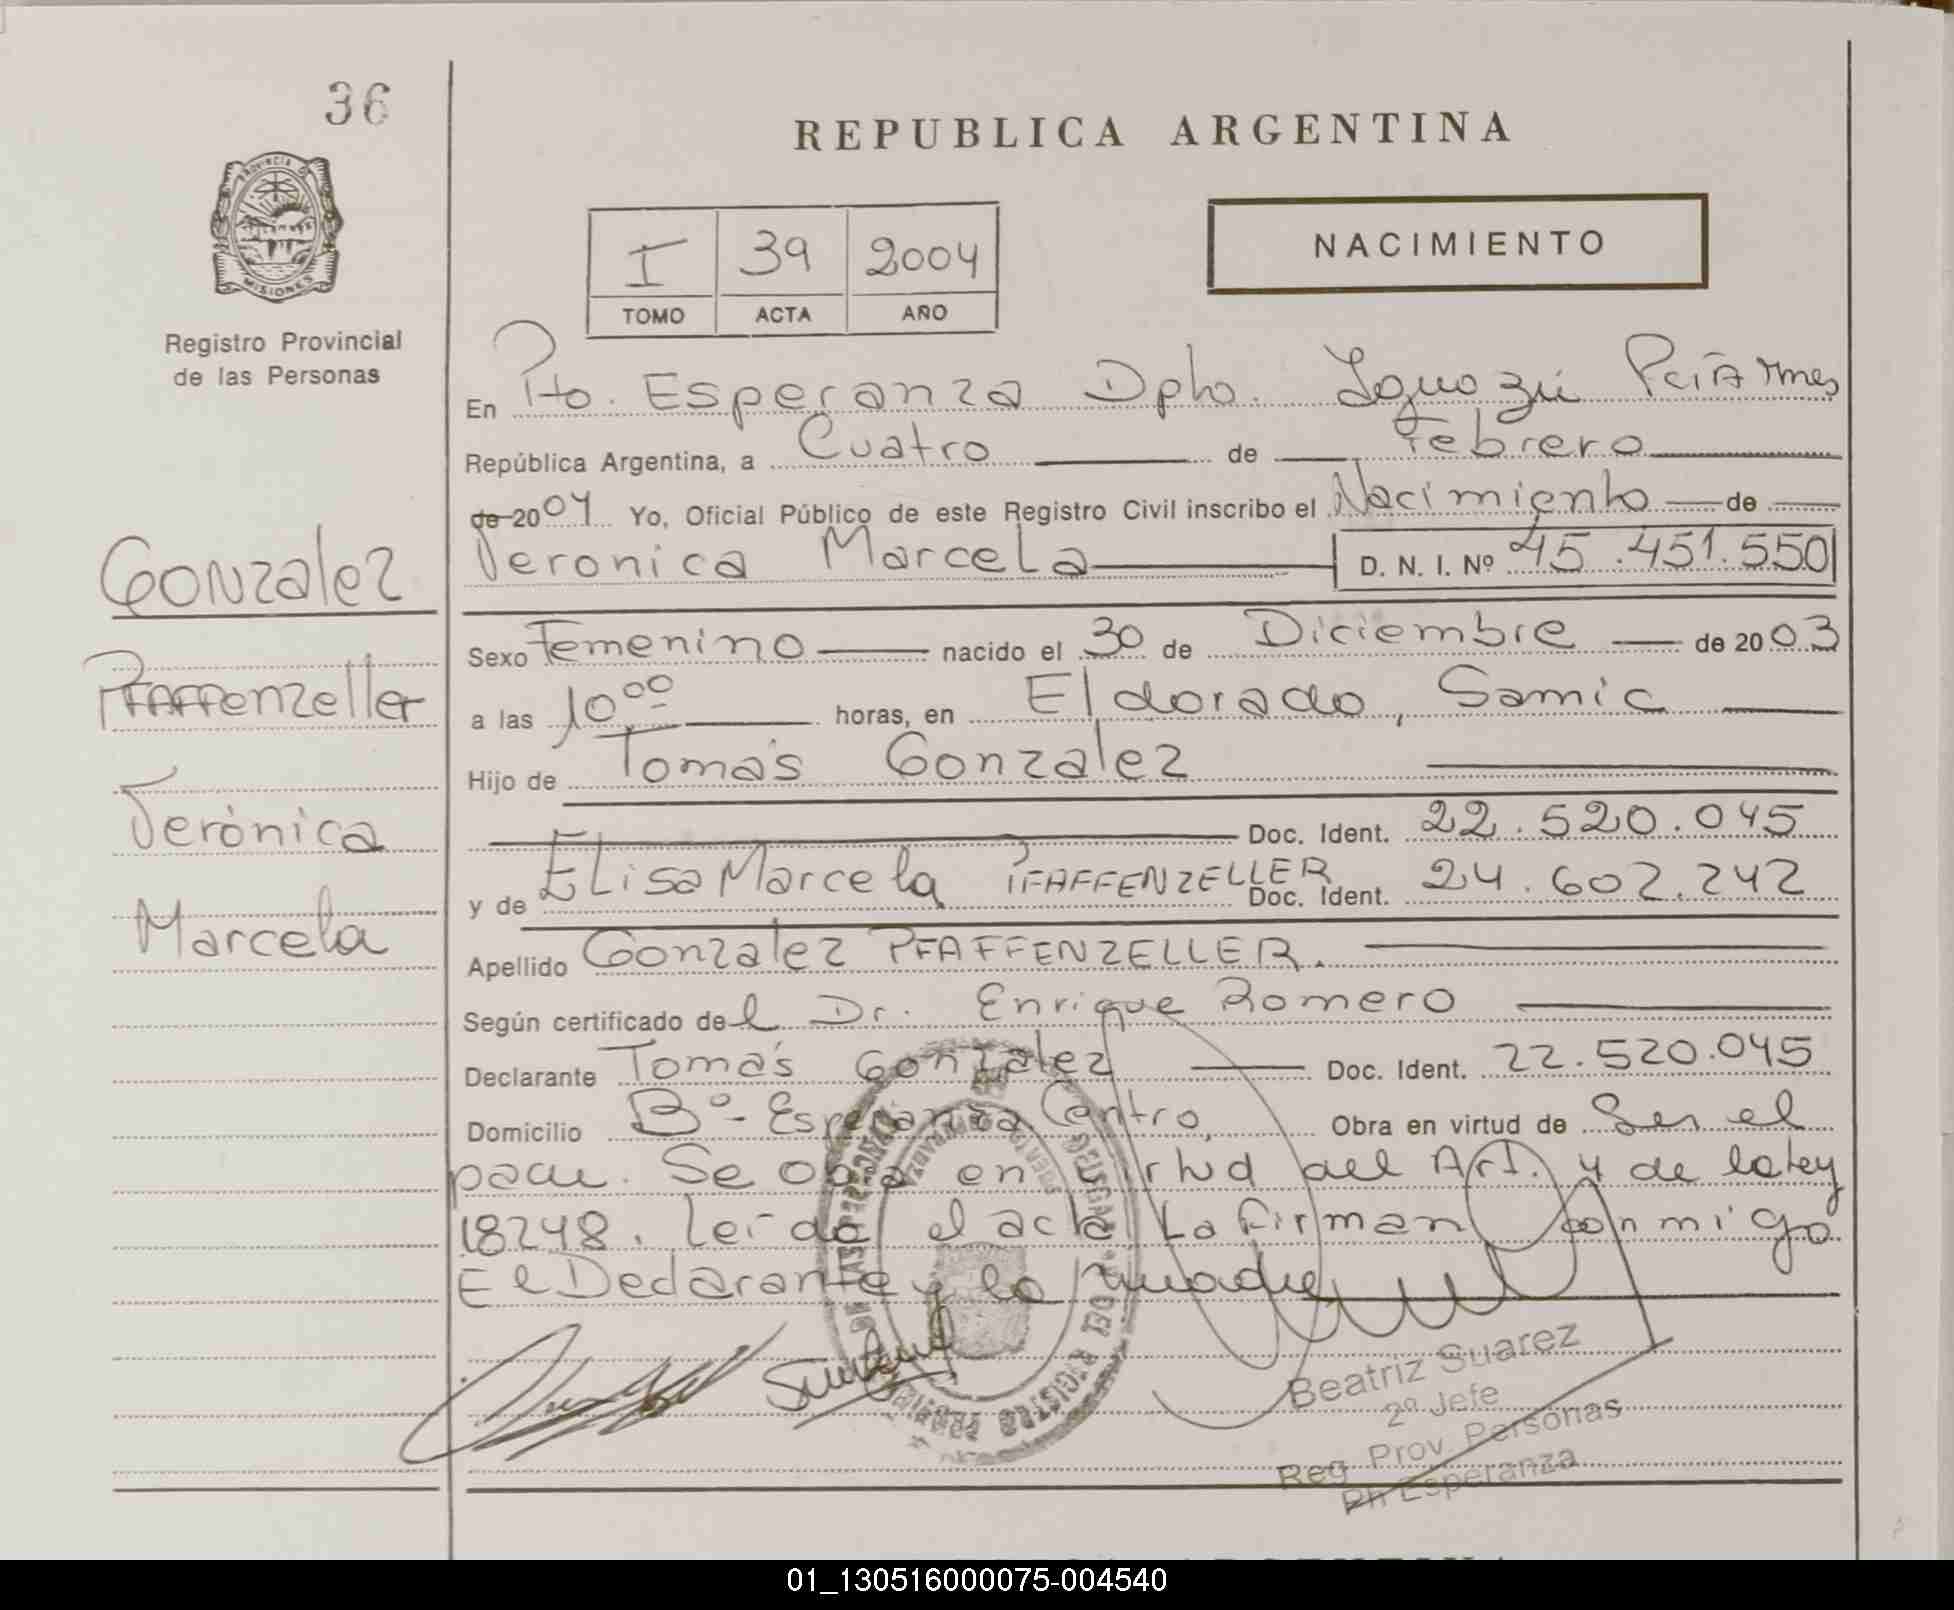 36
REPUBLICA ARGENTINA
PROVINCIA DE
MISIONES
Registro Provincial
de las Personas
I 39 2004
TOMO ACTA AÑO
NACIMIENTO
En Pto. Esperanza Dpto. Iguazú Pcia Mnes
República Argentina, a Cuatro de Febrero
de 2004 Yo, Oficial Público de este Registro Civil inscribo el Nacimiento de
Veronica Marcela D. N. I. Nº 45.451.550
Gonzalez
Pfaffenzeller
Verónica
Marcela
Sexo Femenino nacido el 30 de Diciembre de 2003
a las 10⁰⁰ horas, en Eldorado, Samic
Hijo de Tomás Gonzalez
Doc. Ident. 22.520.045
y de Elisa Marcela PFAFFENZELLER Doc. Ident. 24.602.242
Apellido Gonzalez PFAFFENZELLER.
Según certificado del Dr. Enrique Romero
Declarante Tomás Gonzalez Doc. Ident. 22.520.045
Domicilio Bº- Esperanza Centro, Obra en virtud de Ser el
padre. Se obra en virtud del Art. 4 de la ley
18248. Leída el acta La firman conmigo
El Declarante y la madre
Beatriz Suarez
2º Jefe
Reg Prov Personas
Pto Esperanza
01_130516000075-004540